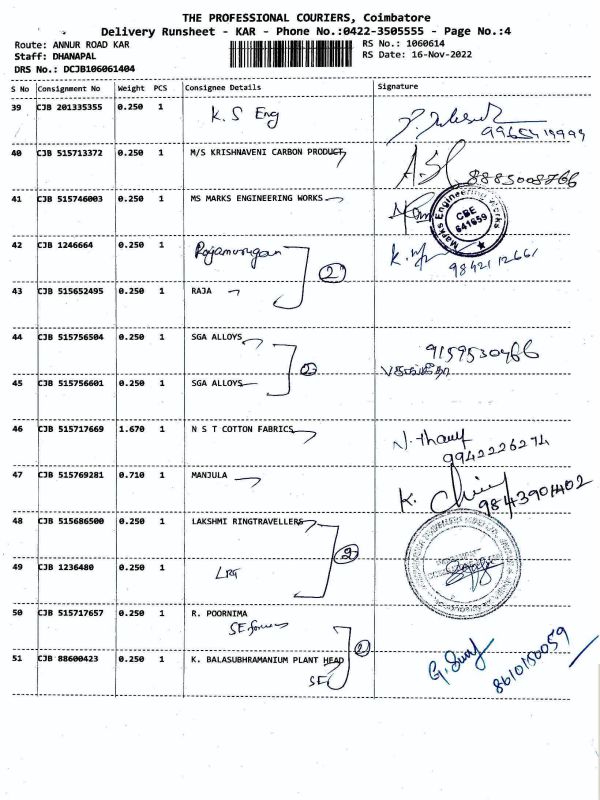 THE PROFESSIONAL COURIERS, Coimbatore
Delivery Runsheet - KAR - Phone No.:0422-3505555 - Page No.:4
Route: ANNUR ROAD KAR RS No.: 1060614
Staff: DHANAPAL RS Date: 16-Nov-2022
DRS No.: DCJB106061404
S No Consignment No Weight PCS Consignee Details Signature
39 CJB 201335355 0.250 1 K. S Eng
40 CJB 515713372 0.250 1 M/S KRISHNAVENI CARBON PRODUCT 8885008766
41 CJB 515746003 0.250 1 MS MARKS ENGINEERING WORKS
Marks Engineering Works
CBE
641659
42 CJB 1246664 0.250 1 Rajamurugan 2
9842112661
43 CJB 515652495 0.250 1 RAJA
44 CJB 515756504 0.250 1 SGA ALLOYS 2 9159530466
45 CJB 515756601 0.250 1 SGA ALLOYS
46 CJB 515717669 1.670 1 N S T COTTON FABRICS
9942226274
47 CJB 515769281 0.710 1 MANJULA K.
9843901402
48 CJB 515686500 0.250 1 LAKSHMI RINGTRAVELLERS 2
49 CJB 1236480 0.250 1 LRT
50 CJB 515717657 0.250 1 R. POORNIMA
2
51 CJB 88600423 0.250 1 K. BALASUBHRAMANIUM PLANT HEAD 8610150059